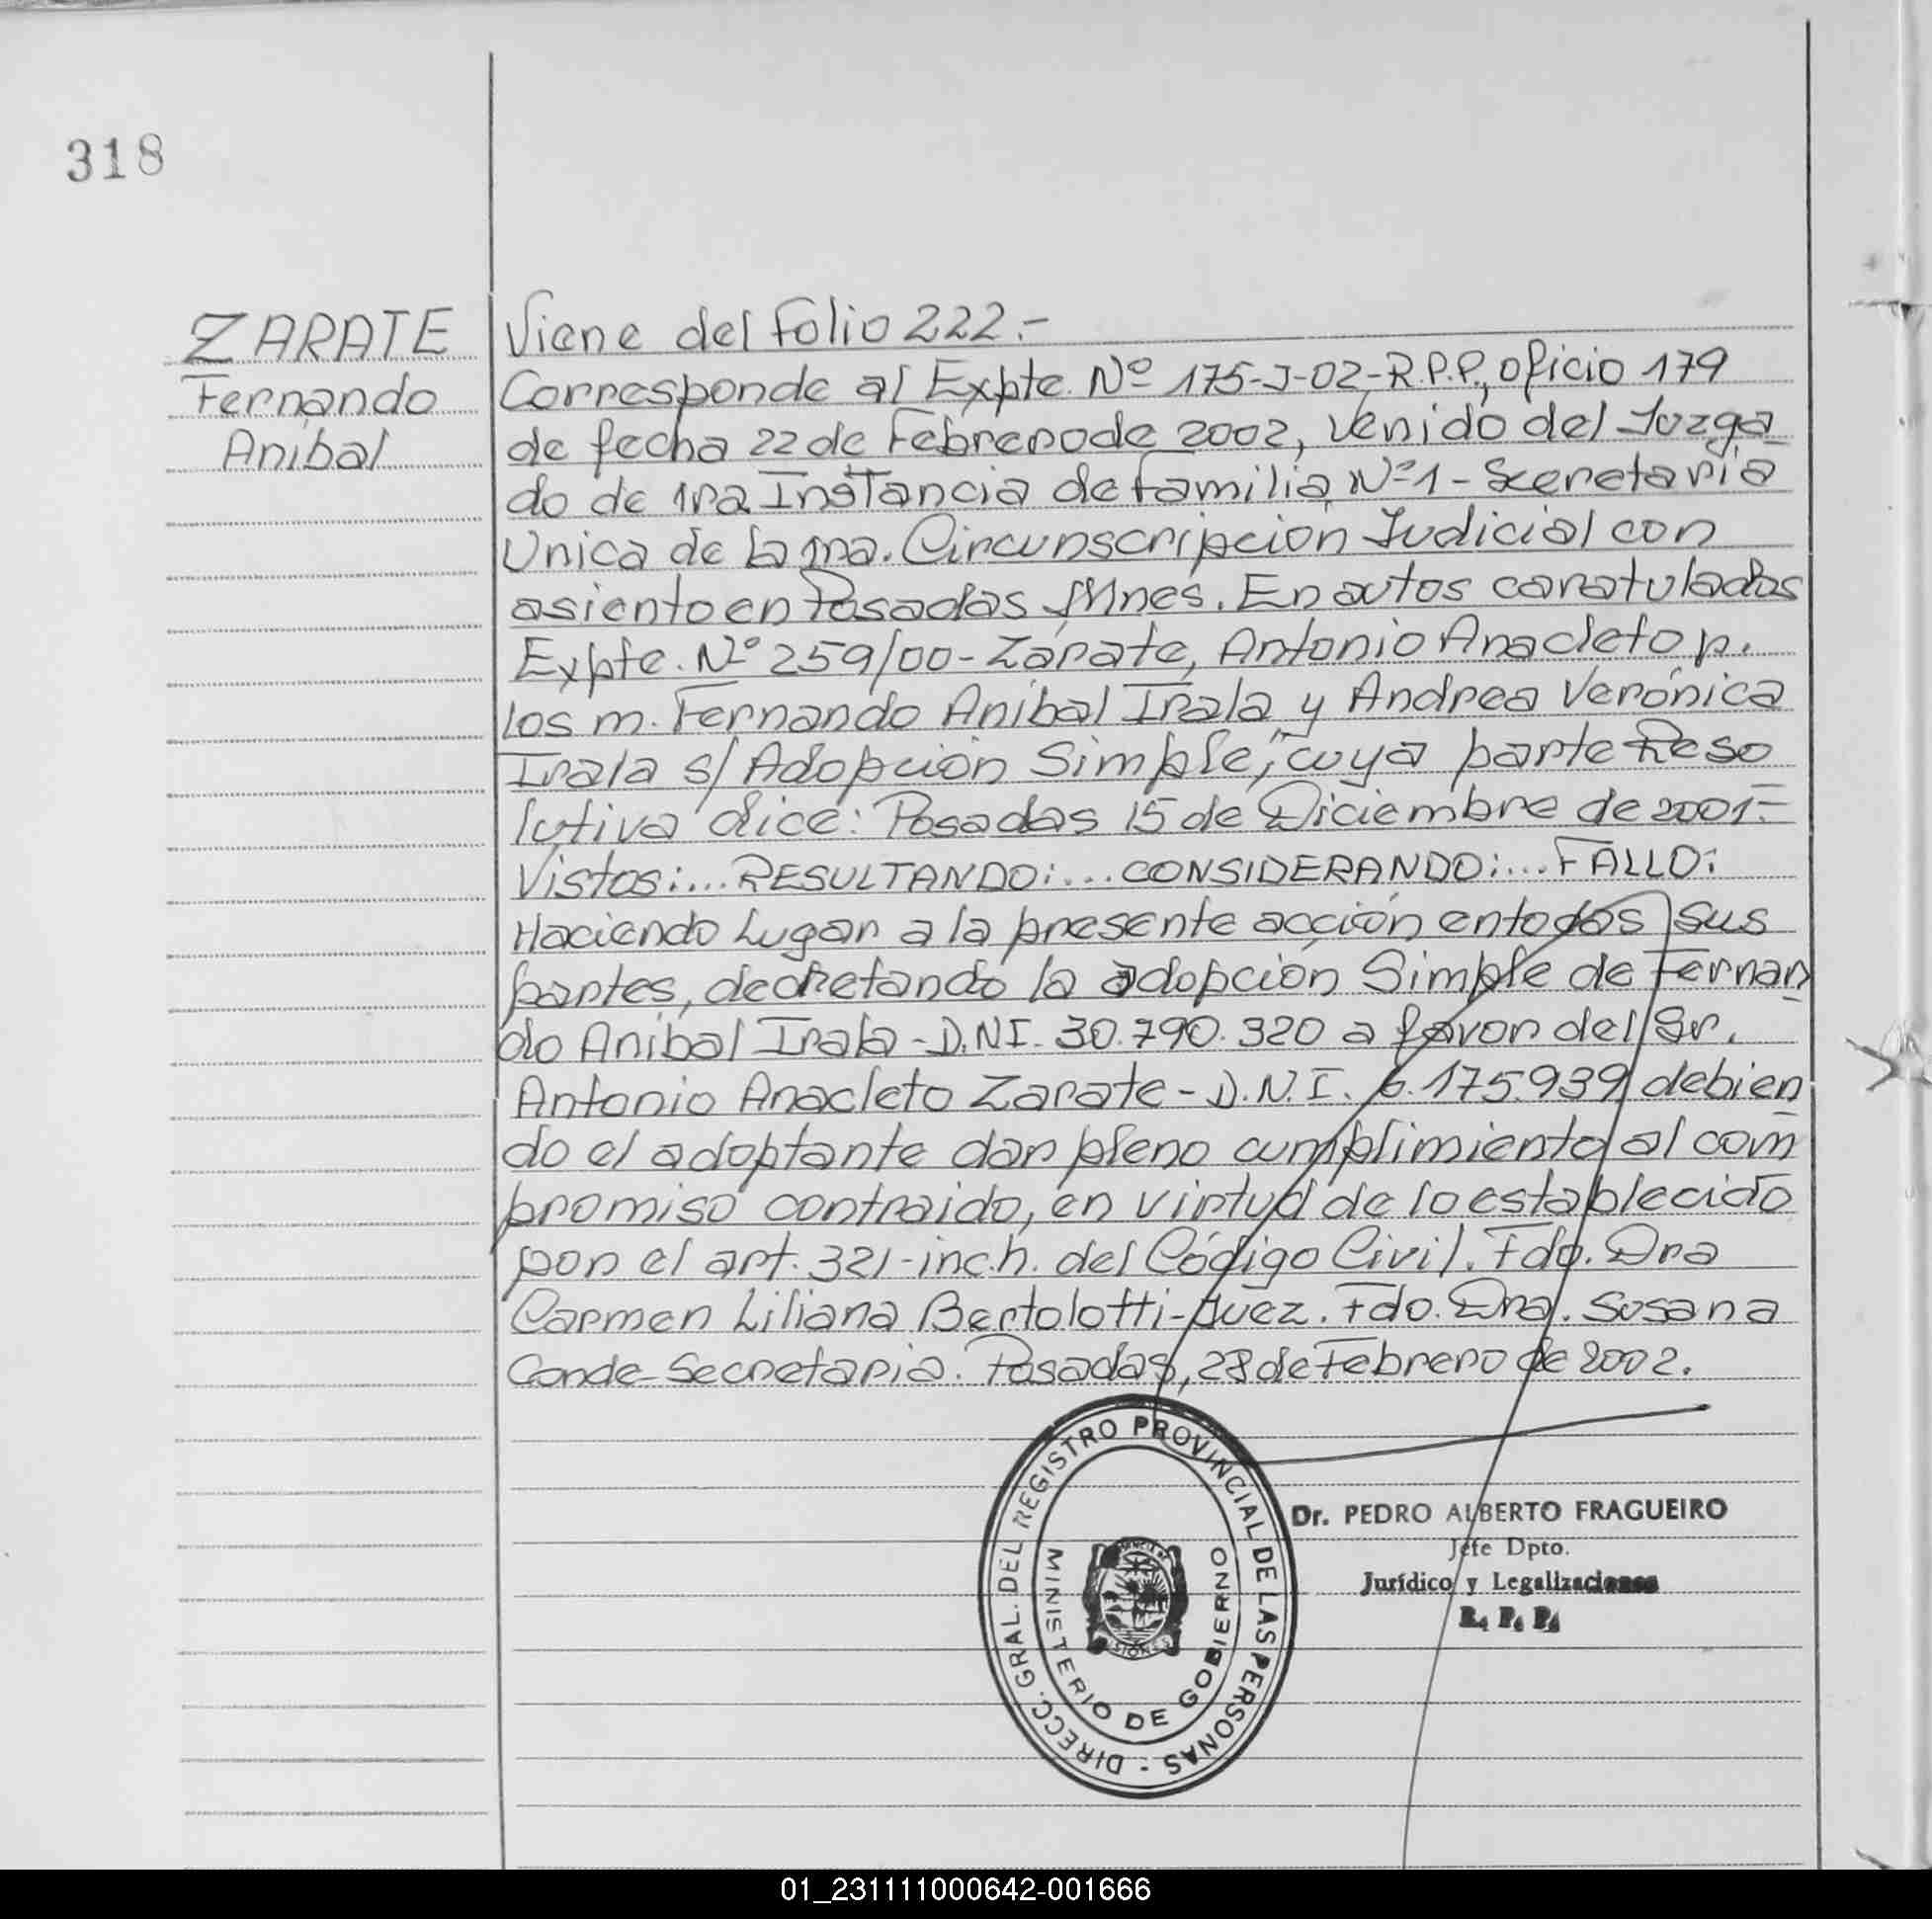 318
ZARATE
Fernando
Anibal
Viene del Folio 222.-
Corresponde al Expte. Nº 175-J-02-R.P.P., oficio 179
de fecha 22 de Febrero de 2002, venido del Juzga
do de 1ra Instancia de familia Nº1 - Secretaria
Unica de la 1ra. Circunscripción Judicial con
asiento en Posadas Mnes. En autos caratulados
Expte. Nº 259/00 - Zárate, Antonio Anacleto p.
los m. Fernando Anibal Irala y Andrea Verónica
Irala s/ Adopción Simple", cuya parte Reso
lutiva dice: Posadas 15 de Diciembre de 2001.=
Vistos:... RESULTANDO:... CONSIDERANDO:... FALLO:
Haciendo Lugar a la presente acción en todas sus
partes, decretando la adopción Simple de Fernan
do Anibal Irala - D.N.I. 30.790.320 a favor del Sr.
Antonio Anacleto Zarate - D.N.I. 6.175.939 debien
do el adoptante dar pleno cumplimiento al com
promiso contraido, en virtud de lo establecido
por el art. 321 - inc. h. del Código Civil. Fdo. Dra
Carmen Liliana Bertolotti - Juez. Fdo. Dra. Susana
Conde - Secretaria. Posadas, 28 de Febrero de 2002.
DIRECC. GRAL. DEL REGISTRO PROVINCIAL DE LAS PERSONAS -
MINISTERIO DE GOBIERNO
Dr. PEDRO ALBERTO FRAGUEIRO
Jefe Dpto.
Jurídico y Legalizaciones
R. P. P.
01_231111000642-001666